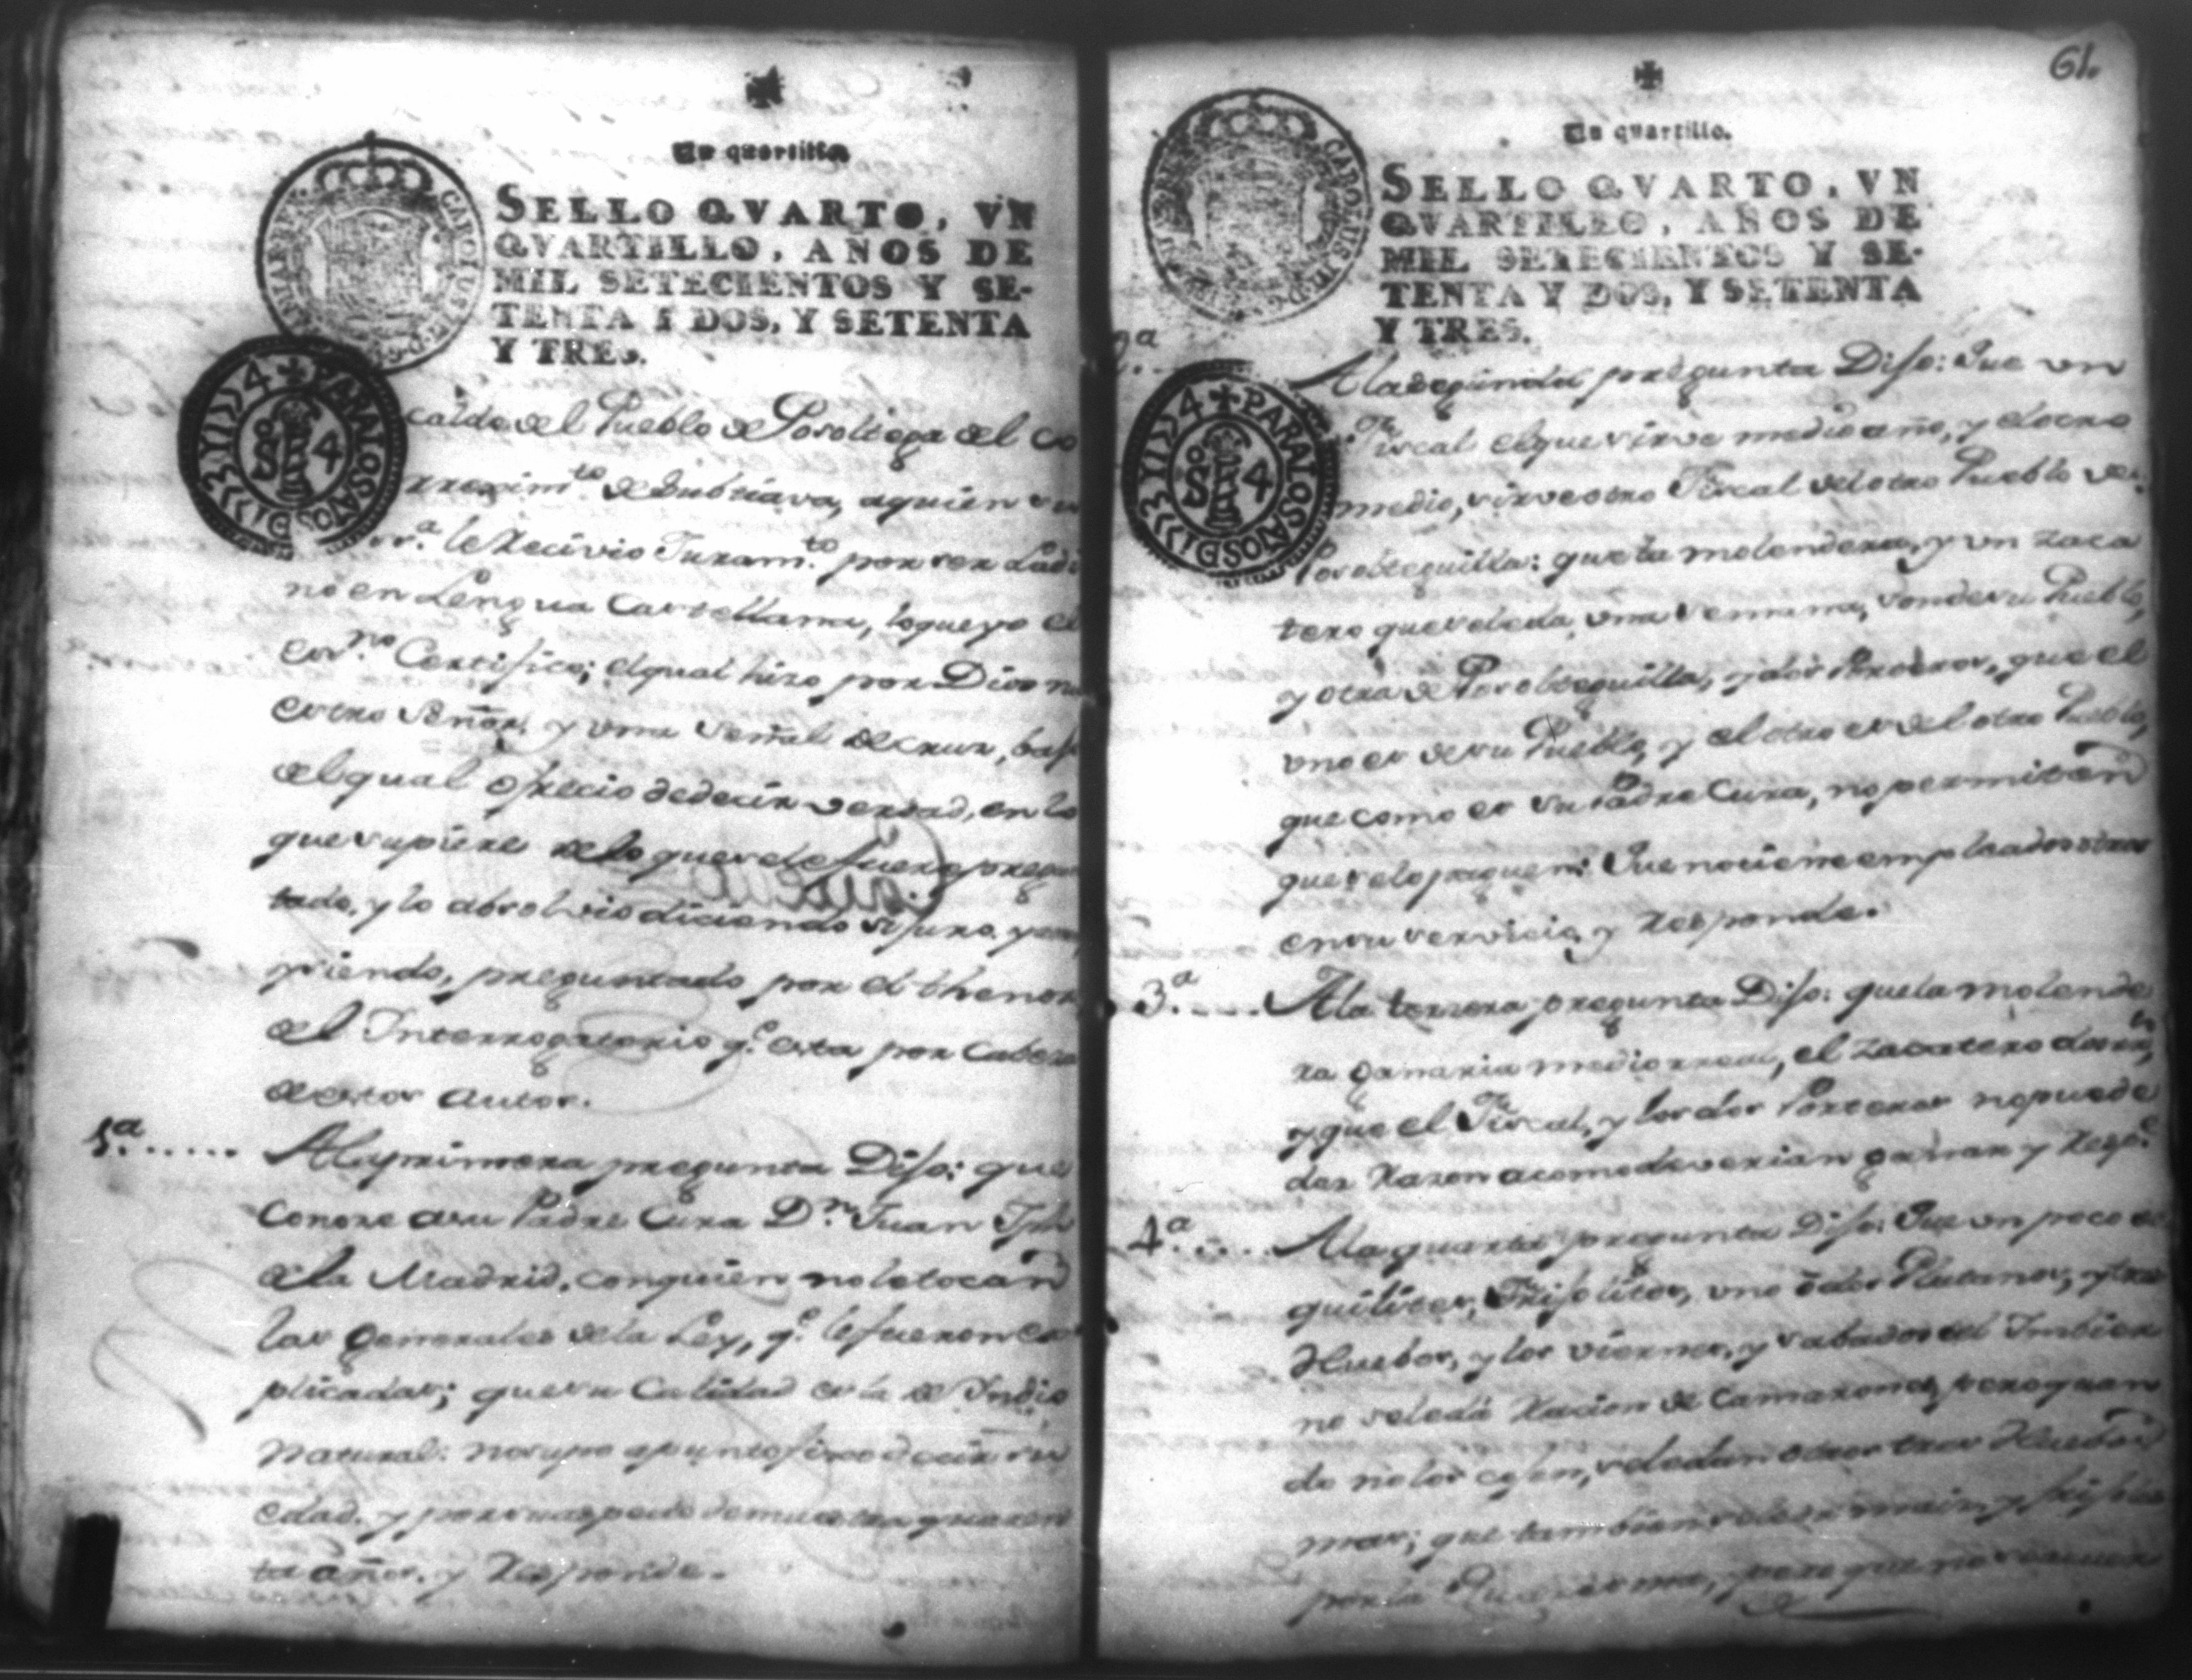 Un quartillo.
SELLO QVARTO, VN
QVARTILLO, AÑOS DE
MIL SETECIENTOS Y SE-
TENTA Y DOS, Y SETENTA
Y TRES.
CAROLUS III D G
PARA LOS AÑOS D 1773 Y 1774
S 4
calde del Pueblo de Posoltega del Co
rregim.to de Subtiava, aquien su
le Recivio Juram.to por ser Ladi
no en Lengua Castellana, loque yo el
Certifico; elqual hizo por Dios nu
estro Señor, y una Señal de cruz, bajo
el qual ofrecio de decir verdad, en lo
que supiere de lo que se le fuere pregun
tado, y lo absolvio diciendo si juro, y
siendo, preguntado por el thenor
del Interrogatorio q.e esta por Cabeza
de estos autos.
1.a..... A la primera pregunta Dijo: que
Conoze a su Padre Cura D.n Juan Jph
de la Madrid, con quien no le tocan
las Generales de la Ley, q.e le fueron ex
plicadas; que su Calidad es la de Indio
Natural: no supo a punto fixo decir su
edad, y por su aspecto demuestra quaren
ta años, y Responde.
61.
Un quartillo.
SELLO QVARTO, VN
QVARTILLO, AÑOS DE
MIL SETECIENTOS Y SE-
TENTA Y DOS, Y SETENTA
Y TRES.
CAROLUS III D G
PARA LOS AÑOS D 1773 Y 1774
S 4
2.a... A la segunda pregunta Dijo: Que un
Fiscal el que sirve medio año, y el otro
medio, sirve otro Fiscal del otro Pueblo de
Posolteguilla: que la molendera, y un zaca
tero que se le da, una semana, son de su Pueblo,
y otra de Posolteguilla, y dos Porteros, que el
uno es de su Pueblo, y el otro es del otro Pueblo,
que como es su Padre Cura, no permiten
que se lo paguen: Que no tiene empleados otros
en su servicio, y Responde.
3.a..... A la tercera pregunta Dijo: que la molende
ra ganaria medio rreal, el zacatero dos rr.s
y que el Fiscal, y los dos Porteros no puede
dar Razon a como deverian ganar y Resp.e
4.a..... A la quarta pregunta Dijo: Que un poco de
quilites, Frijolitos, uno o dos Platanos, y tres
Huebos, y los viernes, y sabados del Imbier
no se le dá Racion de Camarones, pero quan
do no los cojen, se le dan otros tres Huebos
mas; que tambien se le da mais, y frijoles
por la pero que no se acuer